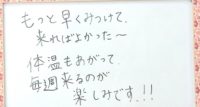 もっと早くみつけて、
来ればよかった〜
体温もあがって、
毎週来るのが
楽しみです!!!